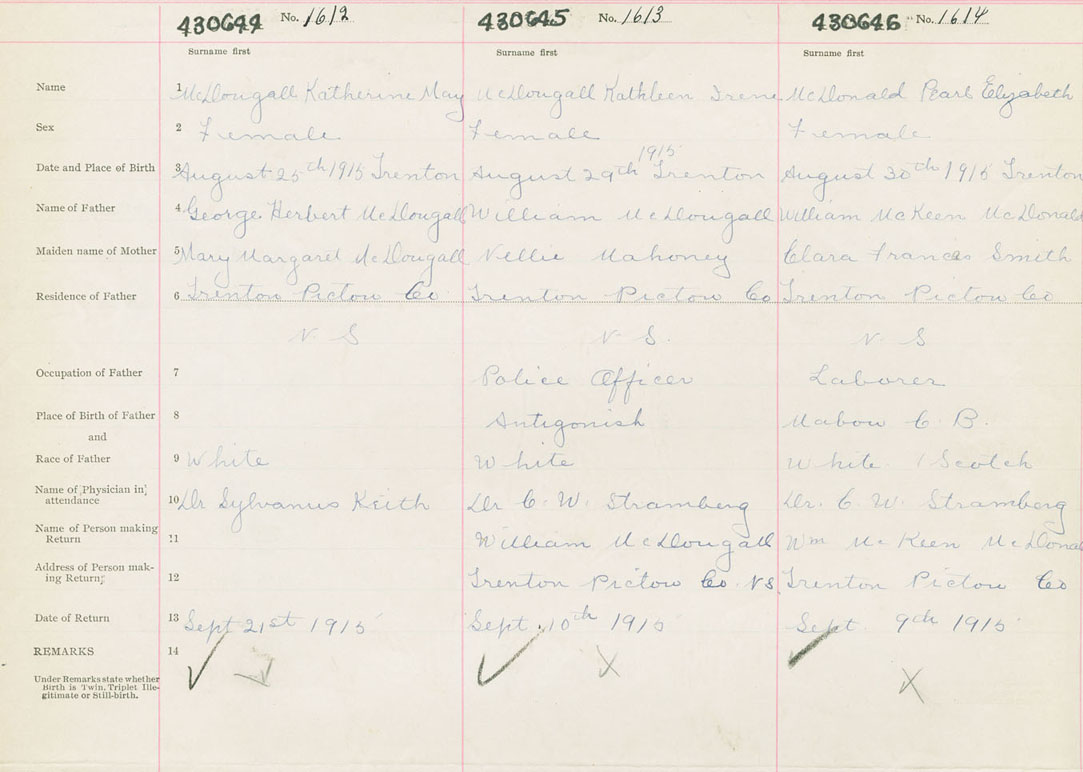 430644 No. 1612 430645 No. 1613 430646 No. 1614
Surname first Surname first Surname first
Name 1 McDougall Katherine May McDougall Kathleen Irene McDonald Pearl Elizabeth
Sex 2 Female Female Female
1915
Date and Place of Birth 3 August 25th 1915 Trenton August 29th Trenton August 30th 1915 Trenton
Name of Father 4 George Herbert McDougall William McDougall William McKeen McDonald
Maiden name of Mother 5 Mary Margaret McDougall Nellie Mahoney Clara Frances Smith
Residence of Father 6 Trenton Pictou Co Trenton Pictou Co Trenton Pictou Co
N. S N. S. N. S
Occupation of Father 7 Police Officer Laborer
Place of Birth of Father 8 Antigonish Mabou C. B.
and
Race of Father 9 White White White. / Scotch
Name of Physician in
attendance 10 Dr Sylvanus Keith Dr C. W. Stramberg Dr. C. W. Stramberg
Name of Person making
Return 11 William McDougall Wm McKeen McDonal
Address of Person mak-
ing Return; 12 Trenton Pictou Co. N S. Trenton Pictou Co
Date of Return 13 Sept 21st 1915 Sept. 10th 1915 Sept. 9th 1915
REMARKS 14
Under Remarks state whether
Birth is Twin, Triplet Ille-
gitimate or Still-birth.